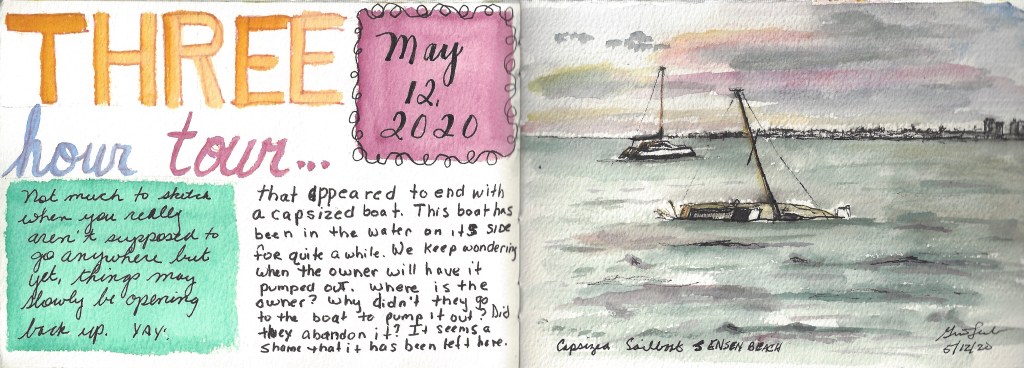 THREE
hour tour...
May
12,
2020
Not much to sketch
when you really
aren't supposed to
go anywhere but
yet, things may
slowly be opening
back up. YAY!
that appeared to end with
a capsized boat. This boat has
been in the water on its side
for quite a while. We keep wondering
when the owner will have it
pumped out. Where is the
owner? Why didn't they go
to the boat to pump it out? Did
they abandon it? It seems a
shame that it has been left here.
Capsized Sailboat JENSEN BEACH
5/12/20